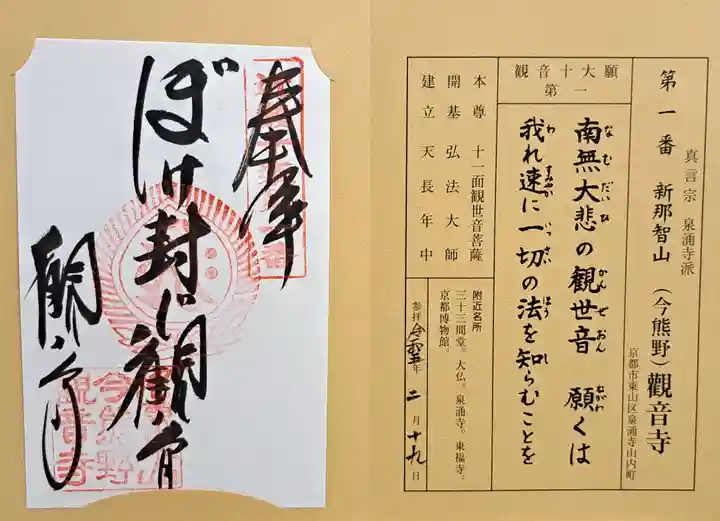 真言宗 泉涌寺派
第一番 新那智山 (今熊野)觀音寺
京都市東山区泉涌寺山内町
観音十大願
第一
南無大悲の観世音 願くは
なむだいひ かんぜおん ねがわ
我れ速に一切の法を知らむことを
わ すみやか いっさい ほう し
本尊 十一面観世音菩薩
開基 弘法大師
建立 天長年中
附近名所
三十三間堂。大仏。泉涌寺。東福寺。
京都博物館。
参拝 令和 年 二月十九日
奉拝
ぼけ封じ観音
観音寺
今熊野
観音寺